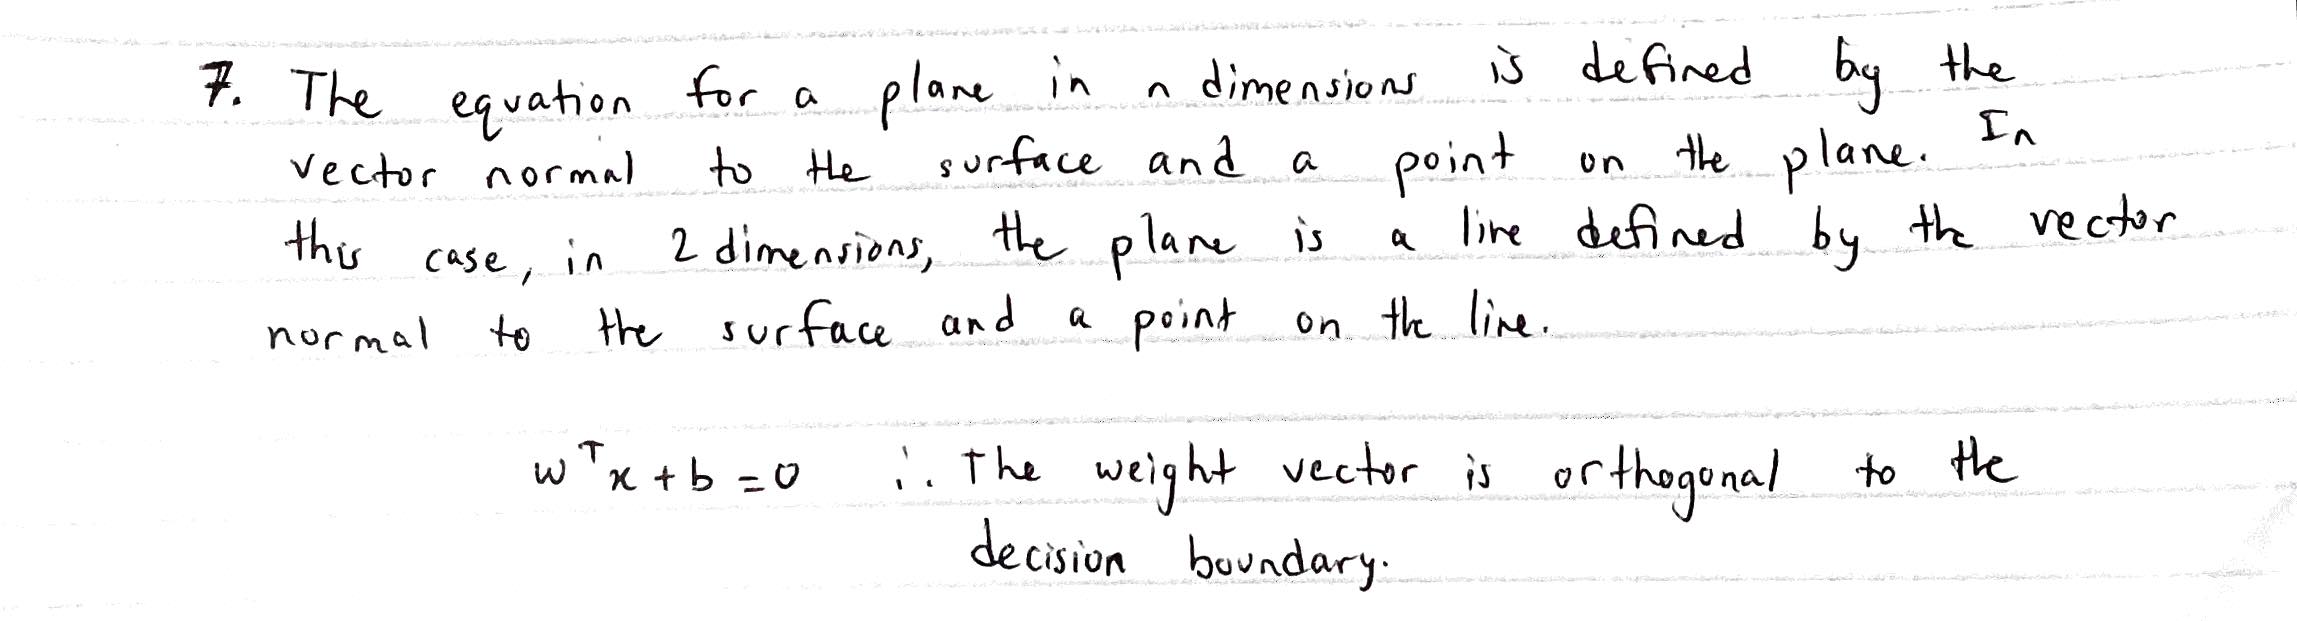 7. The equation for a plane in n dimensions is defined by the
vector normal to the surface and a point on the plane. In
this case, in 2 dimensions, the plane is a line defined by the vector
normal to the surface and a point on the line.
wᵀx + b = 0 ∴ The weight vector is orthogonal to the
decision boundary.